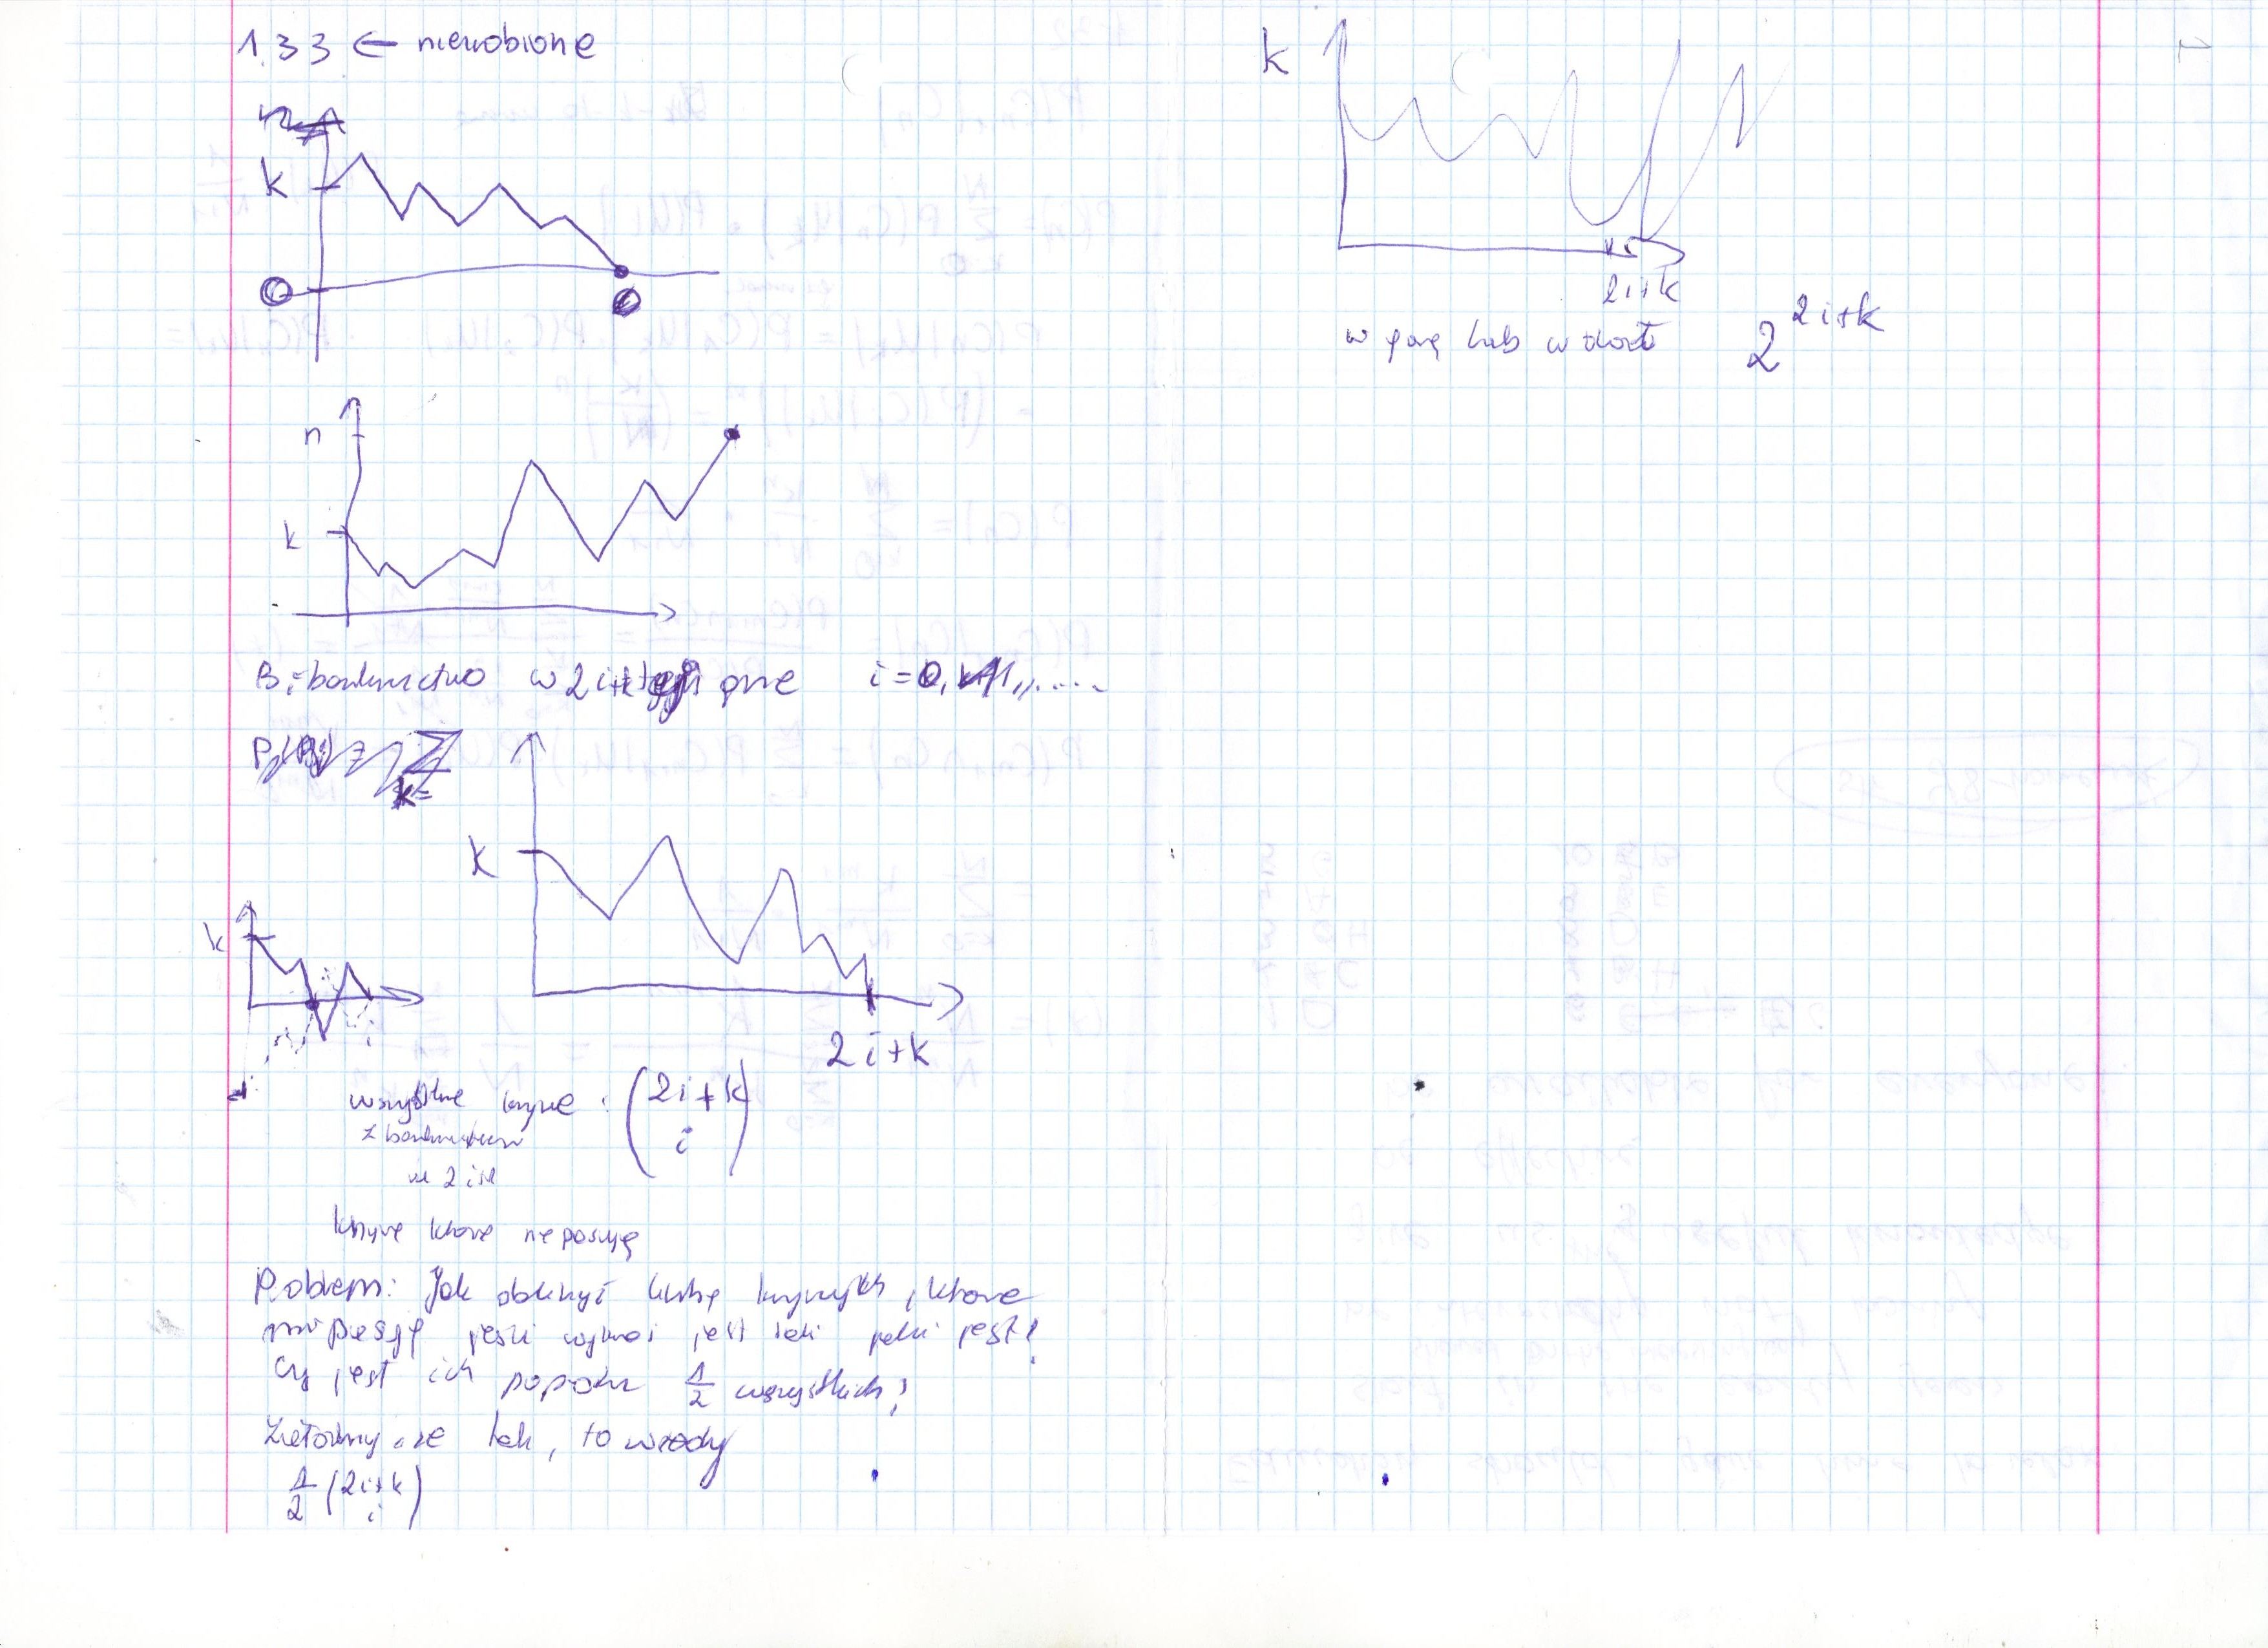 1.33 ← nierobione
k
0
n
k
Bi - bankructwo w 2i+k tej grze i=0, 1, .....
k
k
2i+k
wszystkie krzywe: (2i+k
i)
z bankructwem
w 2i+k
krzywe które nie pasują
Problem: Jak obliczyć liczbę krzywych, które
nie pasują jeśli
czy jest ich połowa 1/2 wszystkich?
Załóżmy, że tak, to wtedy
1/2 (2i+k
i)
k
2i+k
w górę lub w dół 2^2i+k